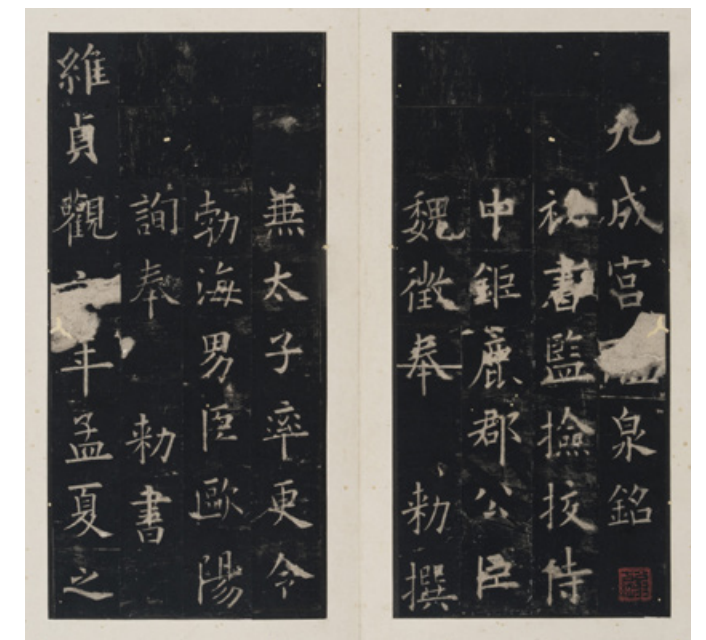 九成宮泉銘
秘書監撿挍侍
中鉅鹿郡公臣
魏徵奉 勑撰
兼太子率更令
勃海男臣歐陽
詢奉 勑書
維貞觀年孟夏之